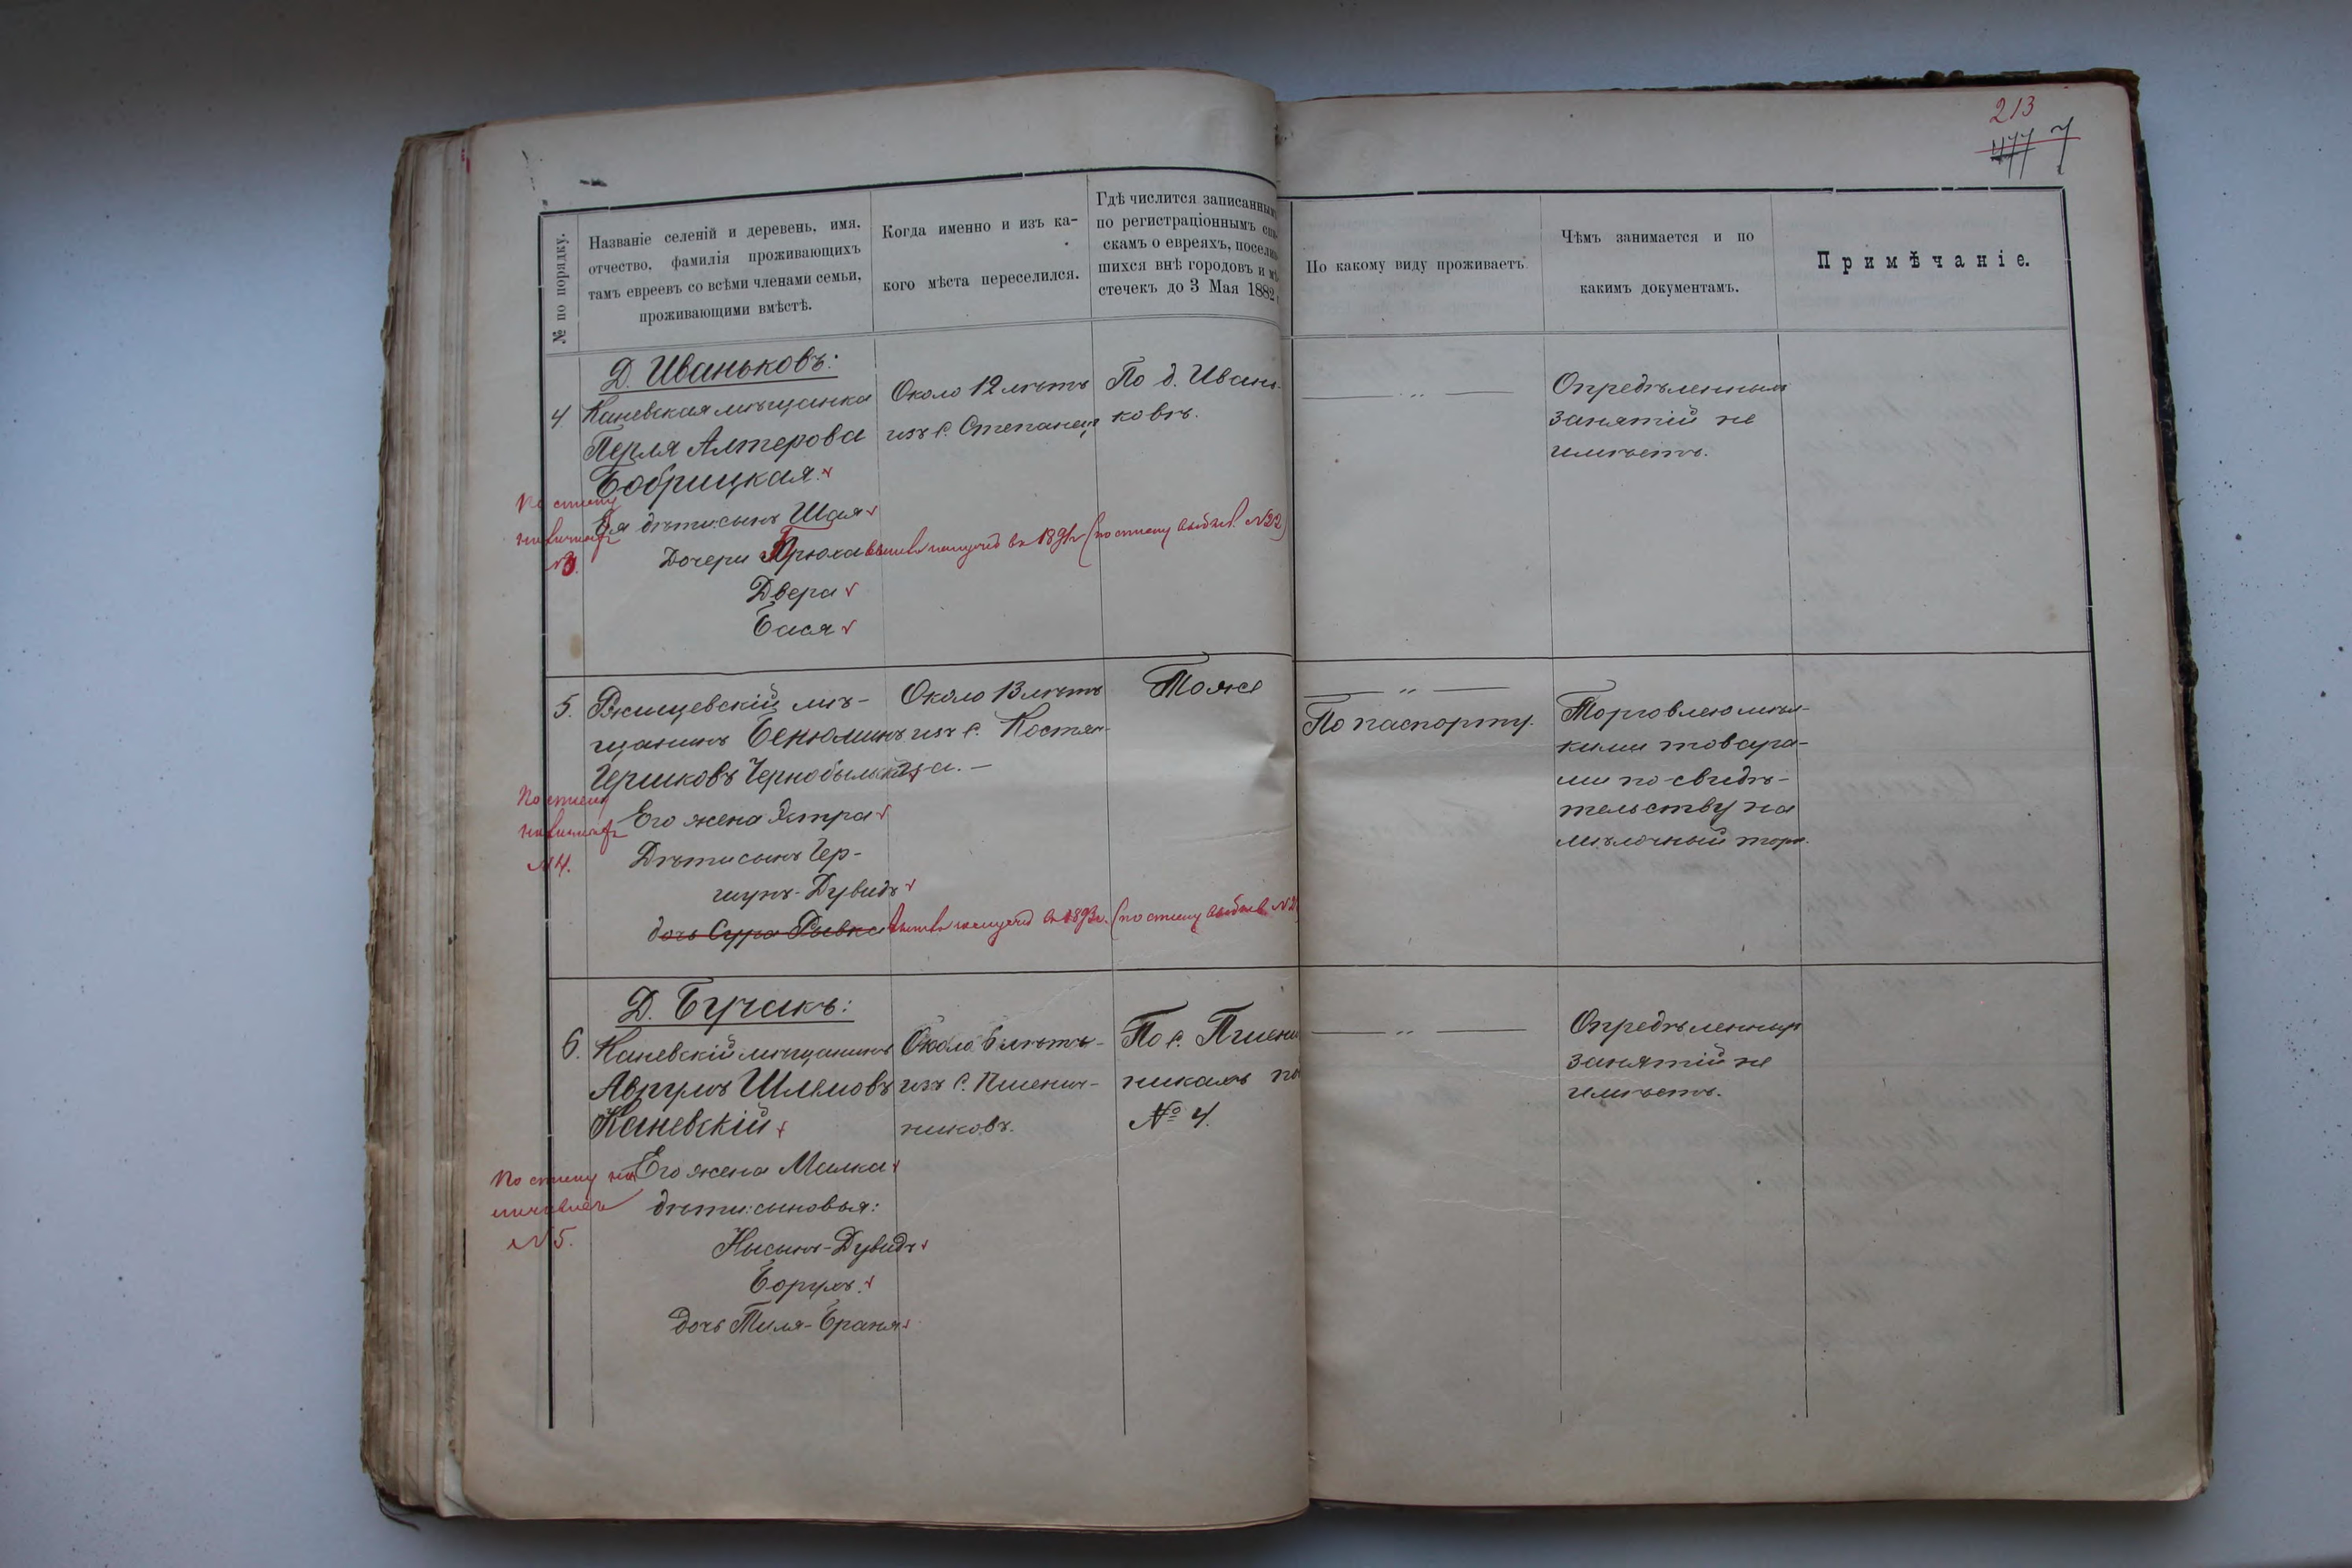 213
477 7
№ по порядку.
Названіе селеній и деревень, имя,
отчество, фамилія проживающихъ
тамъ евреевъ со всѣми членами семьи,
проживающими вмѣстѣ.
Когда именно и изъ ка-
кого мѣста переселился.
Гдѣ числится записаннымъ
по регистраціоннымъ спи-
скамъ о евреяхъ, поселив-
шихся внѣ городовъ и мѣ-
стечекъ до 3 Мая 1882
По какому виду проживаетъ.
Чѣмъ занимается и по
какимъ документамъ.
Примѣчаніе.
Д. Иваньковъ:
4
Каневская мѣщанка
Перля Алтерова
Бобрицкая.
Ея дѣти: сынъ Шая
Дочери Фрюха
Двера
Бася
По списку
№3.
Около 12 лѣтъ
изъ с. Степанецъ
По д. Ивань-
ковъ.
(по списку выбыв. №22)
— " —
Опредѣленныхъ
занятій не
имѣетъ.
5.
Ржищевскій мѣ-
щанинъ Бенюминъ
Гершковъ Чернобыльскій
Его жена Эстра
Дѣти: сынъ Гер-
шунъ-Дувидъ
дочь Сура Рывка
По списку
№4.
Около 13 лѣтъ
изъ с. Костян-
ца. —
Тоже
— " —
По паспорту.
Торговлею мѣл-
кими товара-
ми по свидѣ-
тельству на
мѣлочный торг.
Д. Бучакъ:
6.
Каневскій мѣщанинъ
Аврумъ Шлемовъ
Каневскій
Его жена Малка
дѣти: сыновья:
Нысынъ-Дувидъ
Борухъ.
дочь Тиля-Браня
По списку
№5.
Около 6 лѣтъ
изъ с. Пшенич-
никовъ.
По с. Пшени
никахъ по
№ 4.
— " —
Опредѣленныхъ
занятій не
имѣетъ.